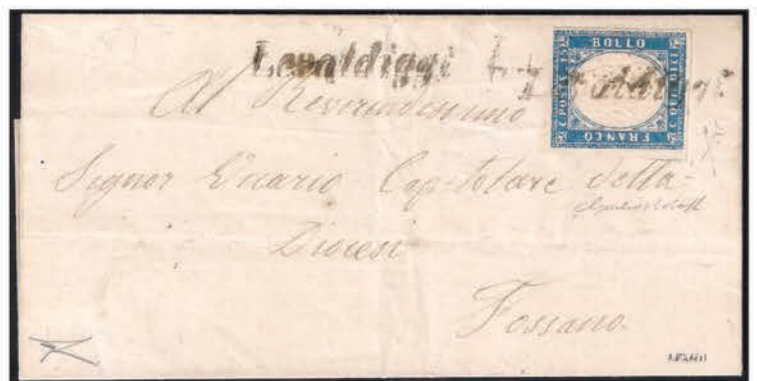 Levaldiggi
BOLLO
C POSTE 15
C QUINDICI
FRANCO
Al Reverendissimo
Signor Vicario Capitolare della
Diocesi
Fossano